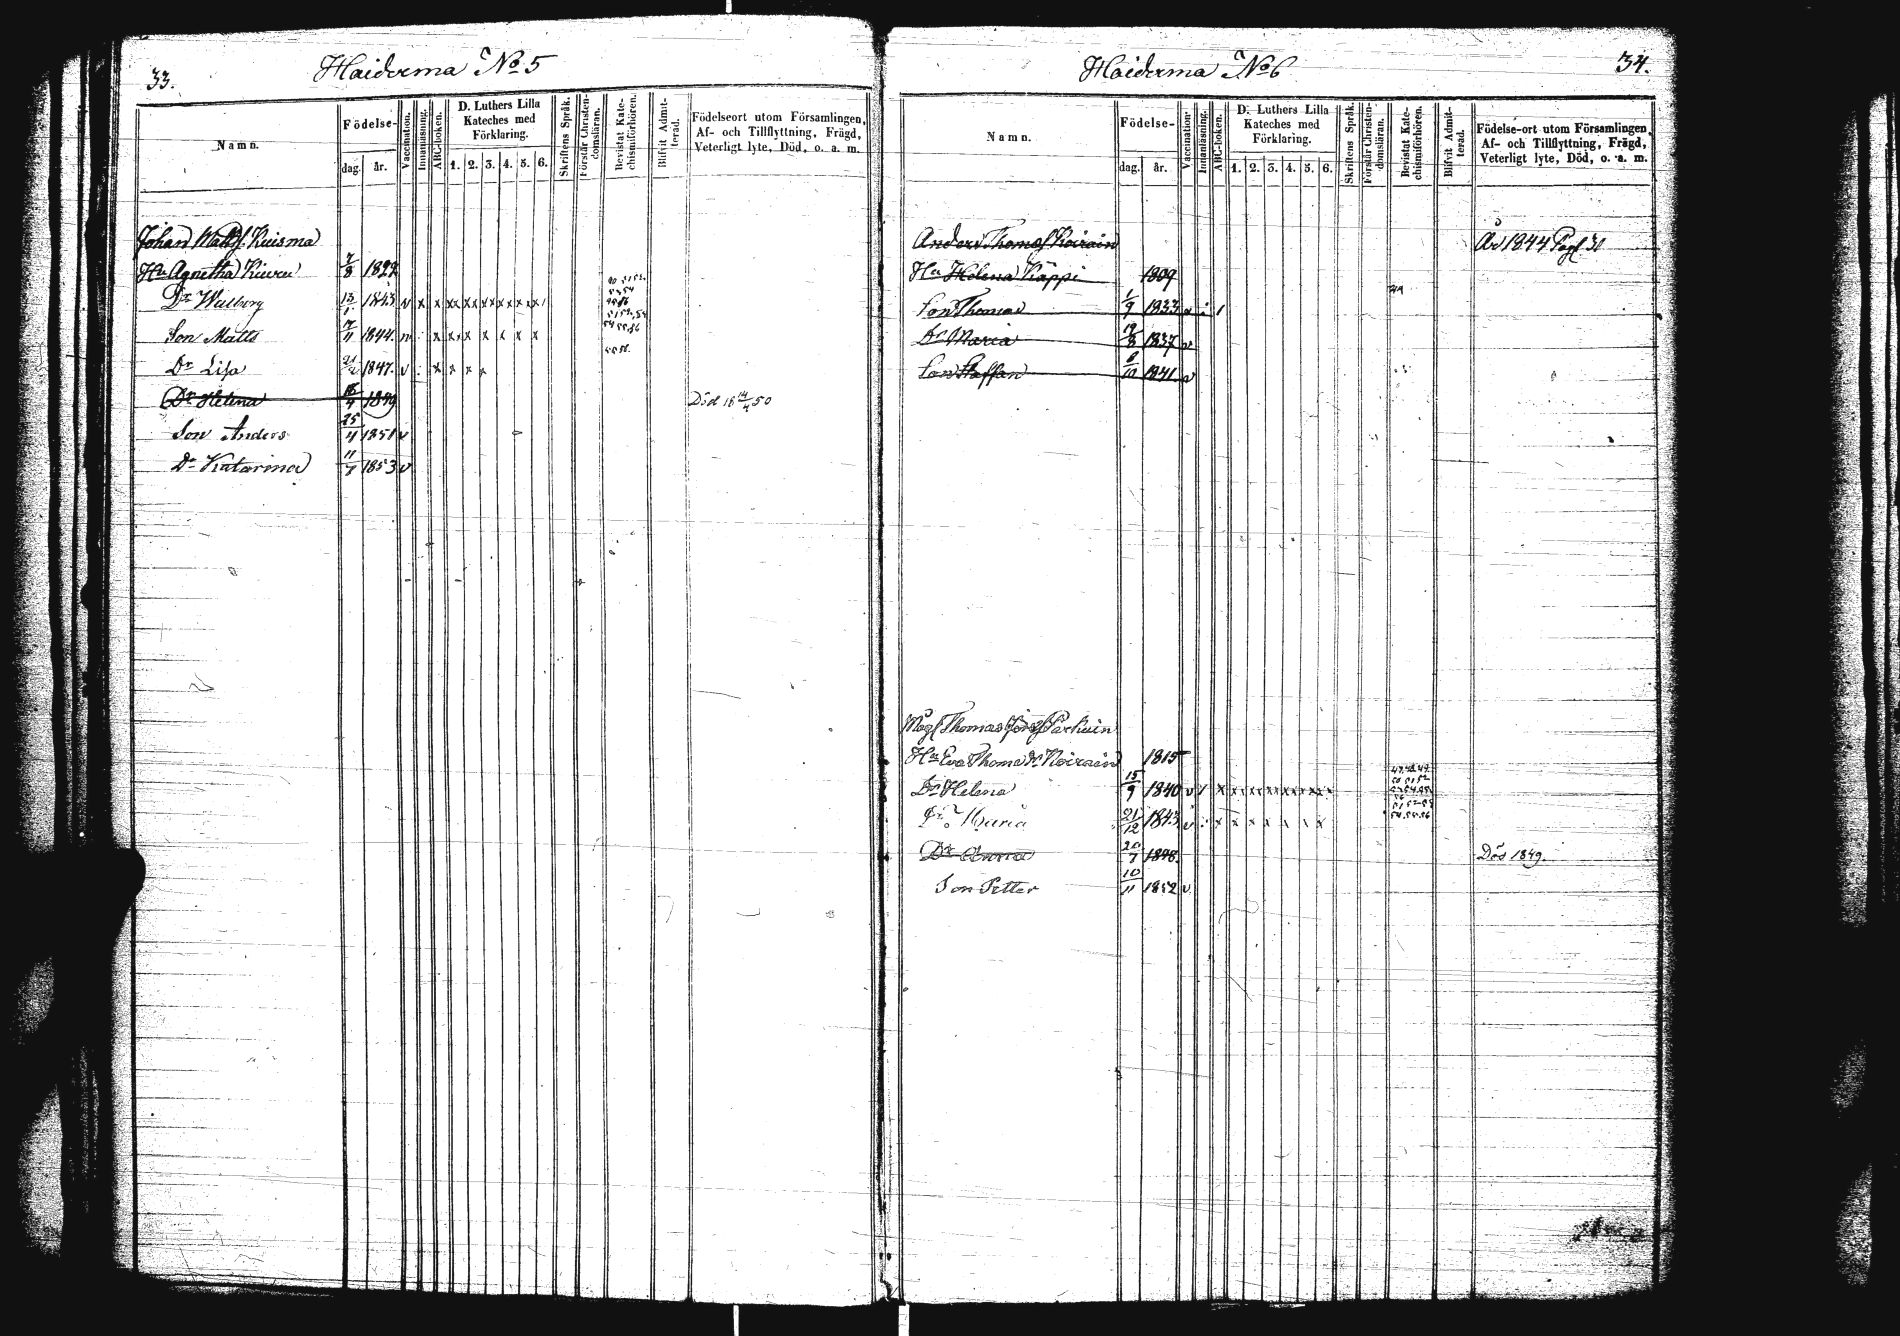 33.
Haiderma No 5
Namn.
Födelse-
dag.
år.
Vaccination.
Innanläsning.
ABC-boken.
D. Luthers Lilla
Kateches med
Förklaring.
1. 2. 3. 4. 5. 6.
Skriftens Språk.
Förstår Christen-
domsläran.
Bevistat Kate-
chismiförhören.
Blifvit Admit-
terad.
Födelseort utom Församlingen,
Af- och Tillflyttning, Frägd,
Veterligt lyte, Död, o. a. m.
Johan Mattsf. Kuisma
Hu Agnetha Kieven 7/8 1822
Dr Walborg 13/1 1843 v x x x x x x x x x x x
Son Matts 7/11 1844. v x x x x x x x
Dr Lisa 21/2 1847. v x x x x
Dr Helena 16/4 1849 Död 18 14/4 50
Son Anders 25/11 1851 v
Dr Katarina 11/7 1853 v
34.
Haiderma No 6
Namn.
Födelse-
dag.
år.
Vaccination.
Innanläsning.
ABC-boken.
D. Luthers Lilla
Kateches med
Förklaring.
1. 2. 3. 4. 5. 6.
Skriftens Språk.
Förstår Christen-
domsläran.
Bevistat Kate-
chismiförhören.
Blifvit Admit-
terad.
Födelse-ort utom Församlingen,
Af- och Tillflyttning, Frägd,
Veterligt lyte, Död, o. a. m.
Anders Thomasf Koirain Åv 1844 Pag 30
Hu Helena Käppi 1809
Son Thomas 1/9 1833 v
Dr Maria 19/8 1837 v
Son Staffan 6/10 1841 v
Måg Thomas Parkuin
Hu Eva Thomæ dr Koirain 1815
Dr Helena 15/9 1840 v x x x x x x x x x x
Dr Maria 21/12 1843 v x x x x x x
Dr Anna 20/7 1848. Död 1849.
Son Petter 10/11 1852 v